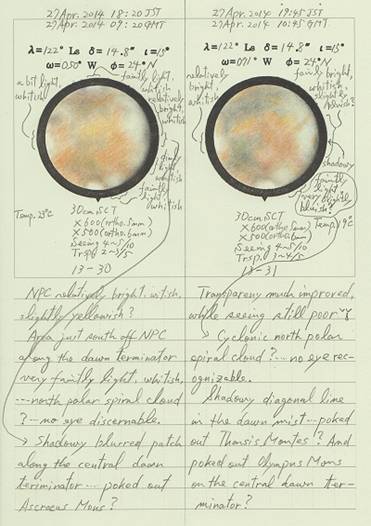 27 Apr. 2014 18:20 JST
27 Apr. 2014 09:20 GMT
λ=122° Ls δ=14.8" ι=15°
ω=050° W φ=24° N
a bit light, whitish
faintly light, whitish
relatively bright, whitish
dimly light, whitish
faintly light whitish
Temp. 23°C
30cm SCT
×600 (ortho. 5mm)
×500 (ortho. 6mm)
Seeing 4~5/10
Trsp. 2~3/5
13-30
NPC relatively bright, witish,
slightly yellowish?
Area just south off NPC
along the dawn terminator
very faintly light, whitish,
…north polar spiral cloud
?…no eye discernable.
→ Shadowy blurred patch
along the central dawn
terminator… poked out
Ascraeus Mons?
27 Apr. 2014 19:45 JST
27 Apr. 2014 10:45 GMT
λ=122° Ls δ=14.8" ι=15°
ω=071° W φ=24° N
relatively bright, whitish
faintly bright, whitish, slightly bluish?
shadowy
faintly light, very slightly bluish?
Temp. 19°C
30cm SCT
×600 (ortho. 5mm)
×500 (ortho. 6mm)
Seeing 4~5/10
Trsp. 3~4/5
13-31
Transparency much improved,
while seeing still poor
→ Cyclonic north polar
spiral cloud?…no eye rec-
ognizable.
Shadowy diagonal line
in the dawn mist…poked
out Tharsis Montes? And
poked out Olympus Mons
on the central dawn ter-
minator?